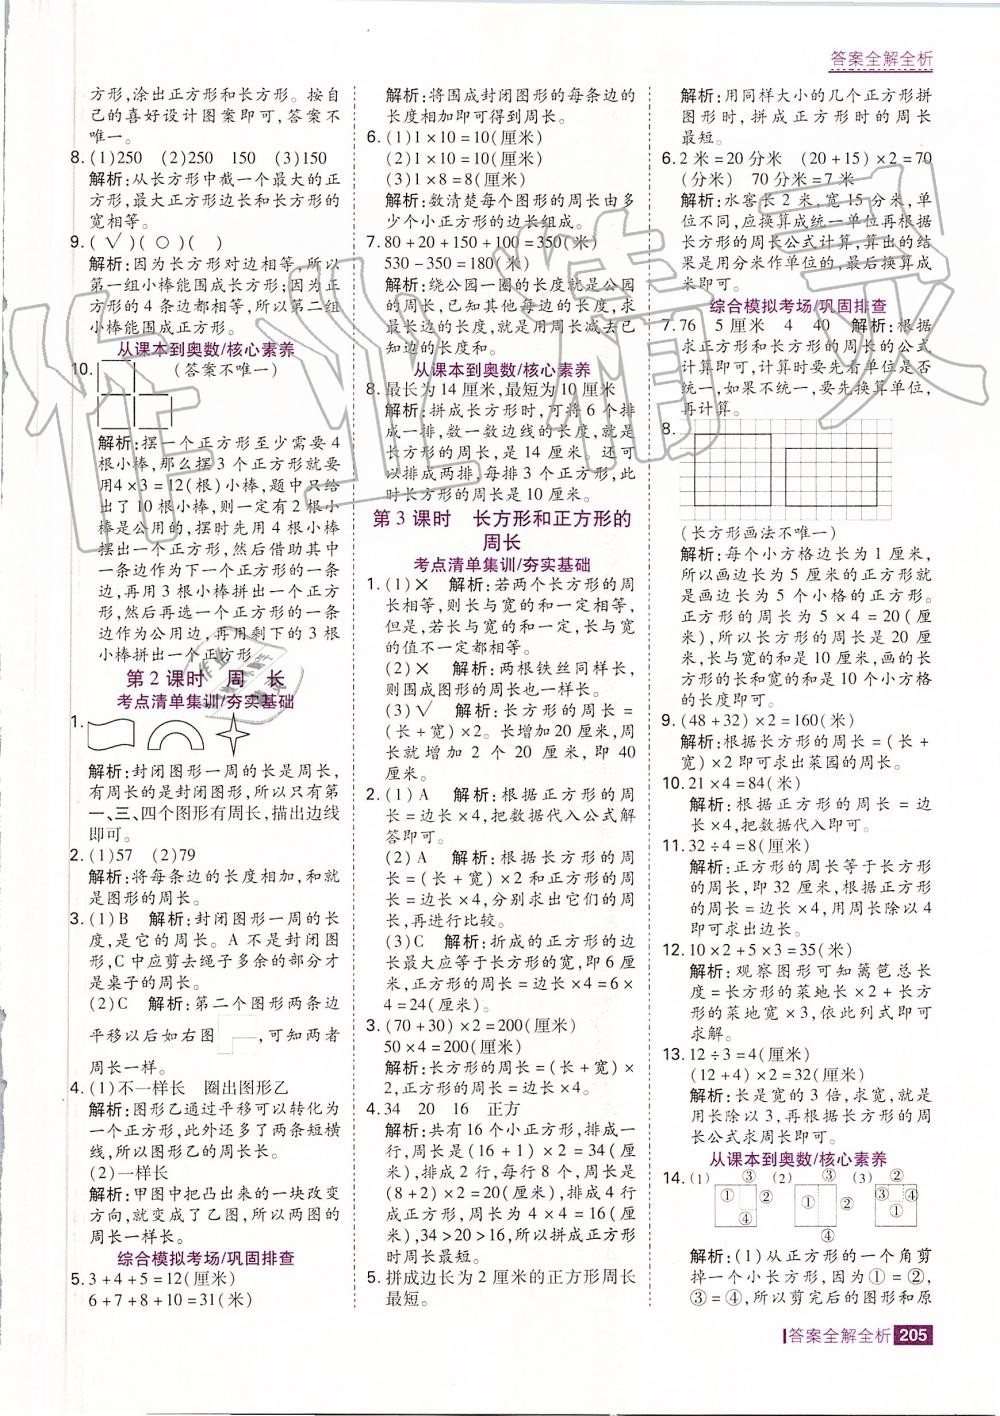 答案全解全析
方形,涂出正方形和长方形。按自
己的喜好设计图案即可,答案不
唯一。
8. (1)250 (2)250 150 (3)150
解析:从长方形中截一个最大的正
方形,最大正方形边长和长方形的
宽相等。
9. ( √ )( ○ )( )
解析:因为长方形对边相等,所以
第一组小棒能围成长方形;因为正
方形的4条边都相等,所以第二组
小棒能围成正方形。
从课本到奥数/核心素养
10. (答案不唯一)
解析:摆一个正方形至少需要4
根小棒,那么摆3个正方形就要
用4×3=12(根)小棒,题中只给
出了10根小棒,则一定有2根小
棒是公用的,摆时先用4根小棒
拼出一个正方形,然后将其中的
一条边作为下一个正方形的一条
边,再用3根小棒拼出一个正方
形,然后再选一个正方形的一条
边作为公用边,再用剩下的3根
小棒拼出一个正方形。
第2课时 周 长
考点清单集训/夯实基础
1.
解析:封闭图形一周的长是周长,
有周长的是封闭图形,所以只有第
一、三、四个图形有周长,描出边线
即可。
2. (1)57 (2)79
解析:将每条边的长度相加,和就
是图形的周长。
3. (1)B 解析:封闭图形一周的长
度,是它的周长。A不是封闭图
形,C中应剪去绳子多余的部分才
是桌子的周长。
(2)C 解析:第二个图形两条边
平移以后如右图 ,可知两者
周长一样。
4. (1)不一样长 圈出图形乙
解析:图形乙通过平移可以转化为
一个正方形,此外还多了两条短横
线,所以图形乙的周长长。
(2)一样长
解析:甲图中把凸出来的一块改变
方向,就变成了乙图,所以两图的
周长一样长。
综合模拟考场/巩固排查
5. 3+4+5=12(厘米)
6+7+8+10=31(米)
解析:将围成封闭图形的每条边的
长度相加即可得到周长。
6. (1)1×10=10(厘米)
(2)1×10=10(厘米)
(3)1×8=8(厘米)
解析:数清楚每个图形的周长由多
少个小正方形的边长组成。
7. 80+20+150+100=350(米)
530-350=180(米)
解析:绕公园一圈的长度就是公园
的周长,已知其他每边的长度,求
最长边的长度,就用周长减去已
知边的长度和。
从课本到奥数/核心素养
8. 最长为14厘米,最短为10厘米
解析:拼成长方形时,可将6个排
成一排,数一数边线的长度,就是
长方形的周长,是14厘米。还可
以排成两排,每排3个正方形,此
时长方形的周长是10厘米。
第3课时 长方形和正方形的
周长
考点清单集训/夯实基础
1. (1)× 解析:若两个长方形的周
长相等,则长与宽的和一定相等,
但是,若长与宽的和一定,长与宽
的值不一定都相等。
(2)× 解析:两根铁丝同样长,
则围成图形的周长也一样长。
(3)√ 解析:长方形的周长=
(长+宽)×2。长增加20厘米,周
长就增加2个20厘米,即40
厘米。
2. (1)A 解析:根据正方形的周长=
边长×4,把数据代入公式解
答即可。
(2)A 解析:根据长方形的周长
=(长+宽)×2和正方形的周长=
边长×4,分别求出它们的周
长,再进行比较。
(3)C 解析:折成的正方形的边
长最大应等于长方形的宽,即6厘
米,正方形的周长=边长×4=6×
4=24(厘米)。
3. (70+30)×2=200(厘米)
50×4=200(厘米)
解析:长方形的周长=(长+宽)×
2,正方形的周长=边长×4。
4. 34 20 16 正方
解析:共有16个小正方形,排成一
行,周长是(16+1)×2=34(厘
米),排成2行,每行8个,周长是
(8+2)×2=20(厘米),排成4行
成正方形,周长是4×4=16(厘
米),34>20>16,所以拼成正方形
时周长最短。
5. 拼成边长为2厘米的正方形周长
最短。
解析:用同样大小的几个正方形拼
图形时,拼成正方形时的周长
最短。
6. 2米=20分米 (20+15)×2=70
(分米) 70分米=7米
解析:水窖长2米,宽15分米,单
位不同,应换算成统一单位再根据
长方形的周长公式计算,算出的结
果是用分米作单位的,最后换算成
米即可。
综合模拟考场/巩固排查
7. 76 5厘米 4 40 解析:根据
求正方形和长方形的周长的公式
计算即可,计算时要先看单位是否
统一,如果不统一,要先换算单位,
再计算。
8.
(长方形画法不唯一)
解析:每个小方格边长为1厘米,
所以画边长为5厘米的正方形就
是画边长为5个小格的正方形。
正方形的周长为5×4=20(厘
米),所以长方形的周长是20厘
米,长和宽的和是10厘米,画的长
方形的长和宽的和是10个小方格
的长度即可。
9. (48+32)×2=160(米)
解析:根据长方形的周长=(长+
宽)×2即可求出菜园的周长。
10. 21×4=84(米)
解析:根据正方形的周长=边
长×4,将数据代入即可。
11. 32÷4=8(厘米)
解析:正方形的周长等于长方形
的周长,即32厘米,根据正方形
的周长=边长×4,用周长除以4
即可求出边长。
12. 10×2+5×3=35(米)
解析:观察图形可知篱笆总长
度=长方形的菜地长×2+长方
形的菜地宽×3,依此列式即可
求解。
13. 12÷3=4(厘米)
(12+4)×2=32(厘米)
解析:长是宽的3倍,求宽,就是
用长除以3,再根据长方形的周
长公式求周长即可。
从课本到奥数/核心素养
14. (1) ③ ① ② ④ (2) ③ ① ② ④ (3) ② ③ ④ ①
解析:(1)从正方形的一个角剪
掉一个小长方形,因为①=②,
③=④,所以剪完后的图形和原
答案全解全析 205
作业精灵